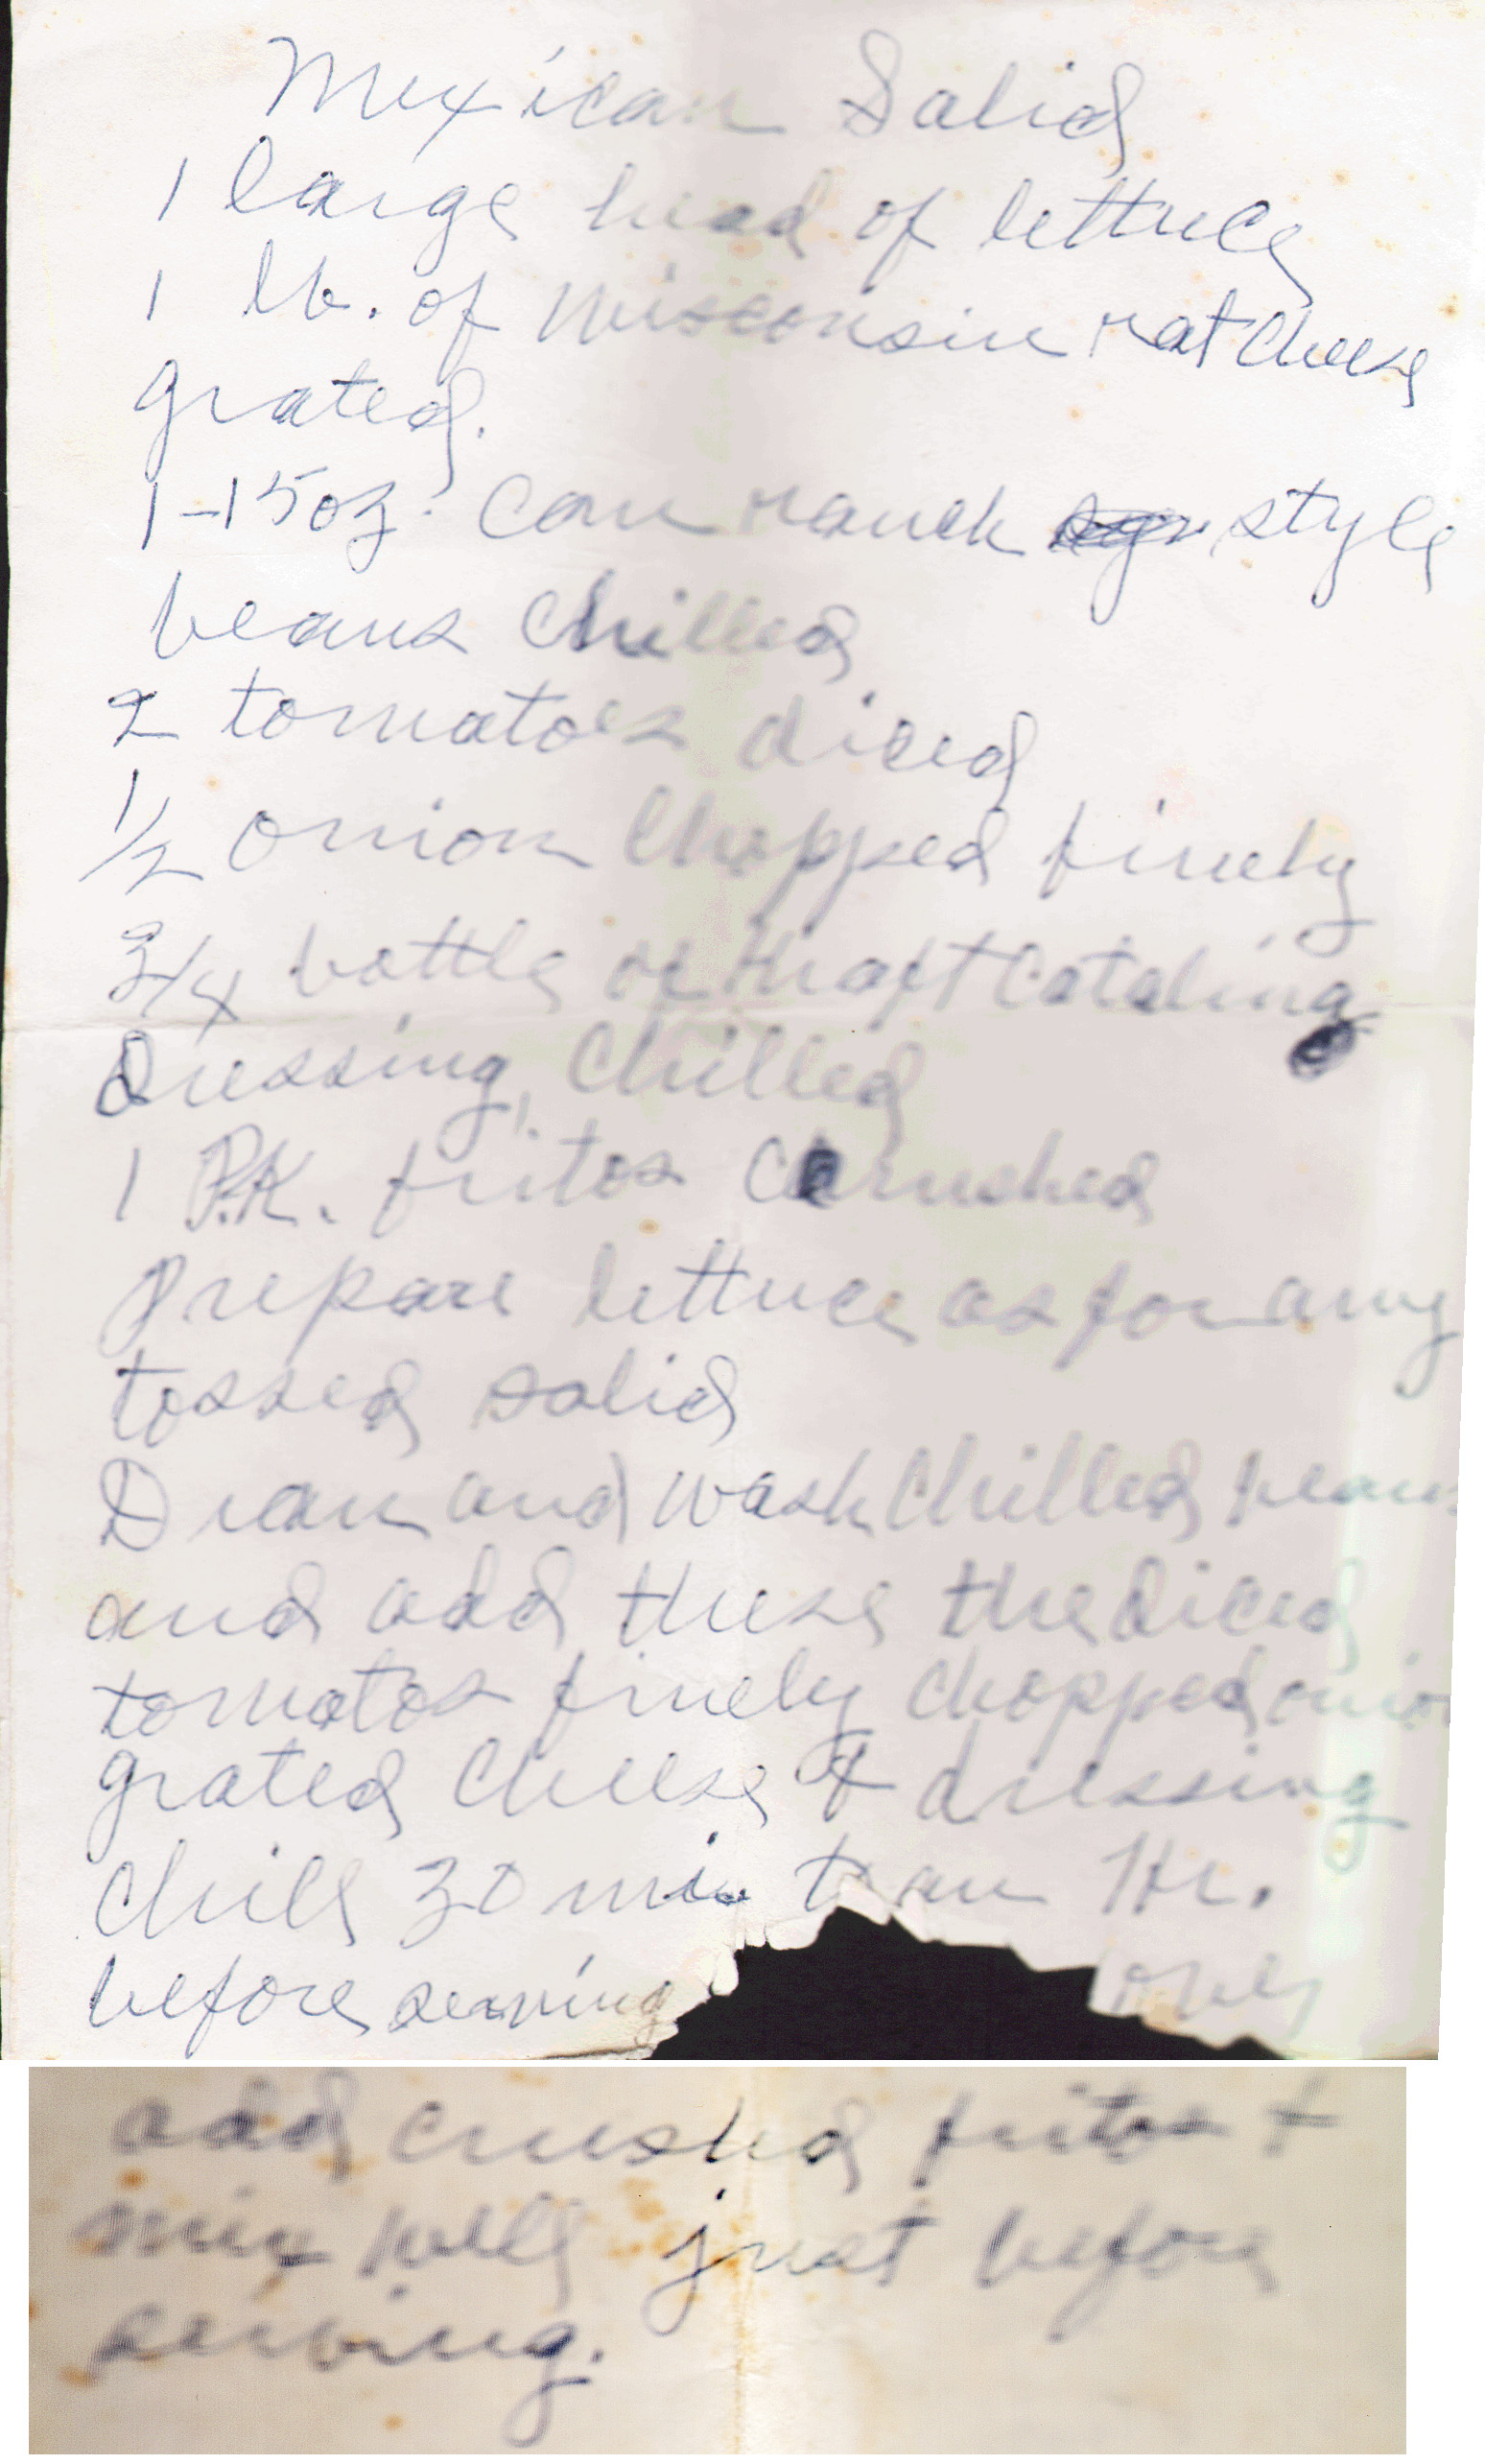 Mexican Salid
1 large head of lettuce
1 lb. of Wisconsin rat Cheese
grated.
1-15oz. Can ranch style
beans Chilled
2 tomatoes diced
1/2 onion Chopped finely
3/4 bottle of Kraft Catalina
Dressing, Chilled
1 PK. fritos Crushed
Prepare lettuce as for any
tossed salid
Drain and wash Chilled beans
and add these the diced
tomatos finely Chopped onion
grated Cheese & dressing
Chill 30 min to an Hr.
before serving over
add crushed fritos +
mix well just before
serving.